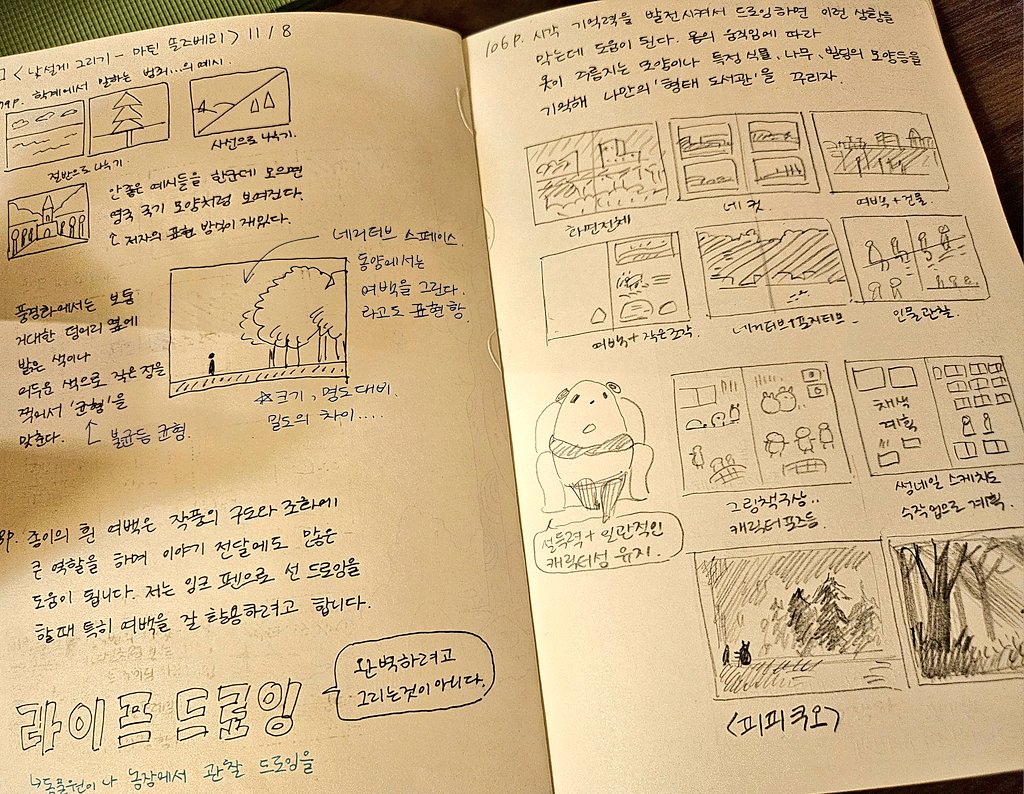 <낯설게 그리기 - 마틴 쏠즈베리> 11/8
79p. 학계에서 말하는 범죄...의 예시.
절반으로 나누기.
사선으로 나누기.
안좋은 예시들을 한군데 모으면
영국 국기 모양처럼 보여진다.
↑ 저자의 표현 방식이 재밌다.
네거티브 스페이스.
동양에서는
여백을 그린다.
라고도 표현함.
풍경화에서는 보통
거대한 덩어리 옆에
밝은 색이나
어두운 색으로 작은 점을
찍어서 '균형'을
맞춘다. ↑ 불균등 균형.
☆크기, 명도 대비.
밀도의 차이....
8p. 종이의 흰 여백은 작품의 구도와 조화에
큰 역할을 하며 이야기 전달에도 많은
도움이 됩니다. 저는 잉크 펜으로 선 드로잉을
할때 특히 여백을 잘 활용하려고 합니다.
라이프 드로잉
완벽하려고
그리는것이 아니다.
↳동물원이나 농장에서 관찰 드로잉을
106p. 시각 기억력을 발전시켜서 드로잉하면 이런 상황을
막는데 도움이 된다. 몸의 움직임에 따라
옷이 다름지는 모양이나 특정 식물, 나무, 빌딩의 모양등을
기억해 나만의 '형태 도서관'을 꾸리자.
화면전체
네 컷
여백+건물.
여백+작은조각.
네거티브+포지티브
인물관찰.
채색
계획
그림책구상..
캐릭터포즈등
썸네일 스케치도
수작업으로 계획.
설득력+일관적인
캐릭터성 유지.
<피피쿡오>